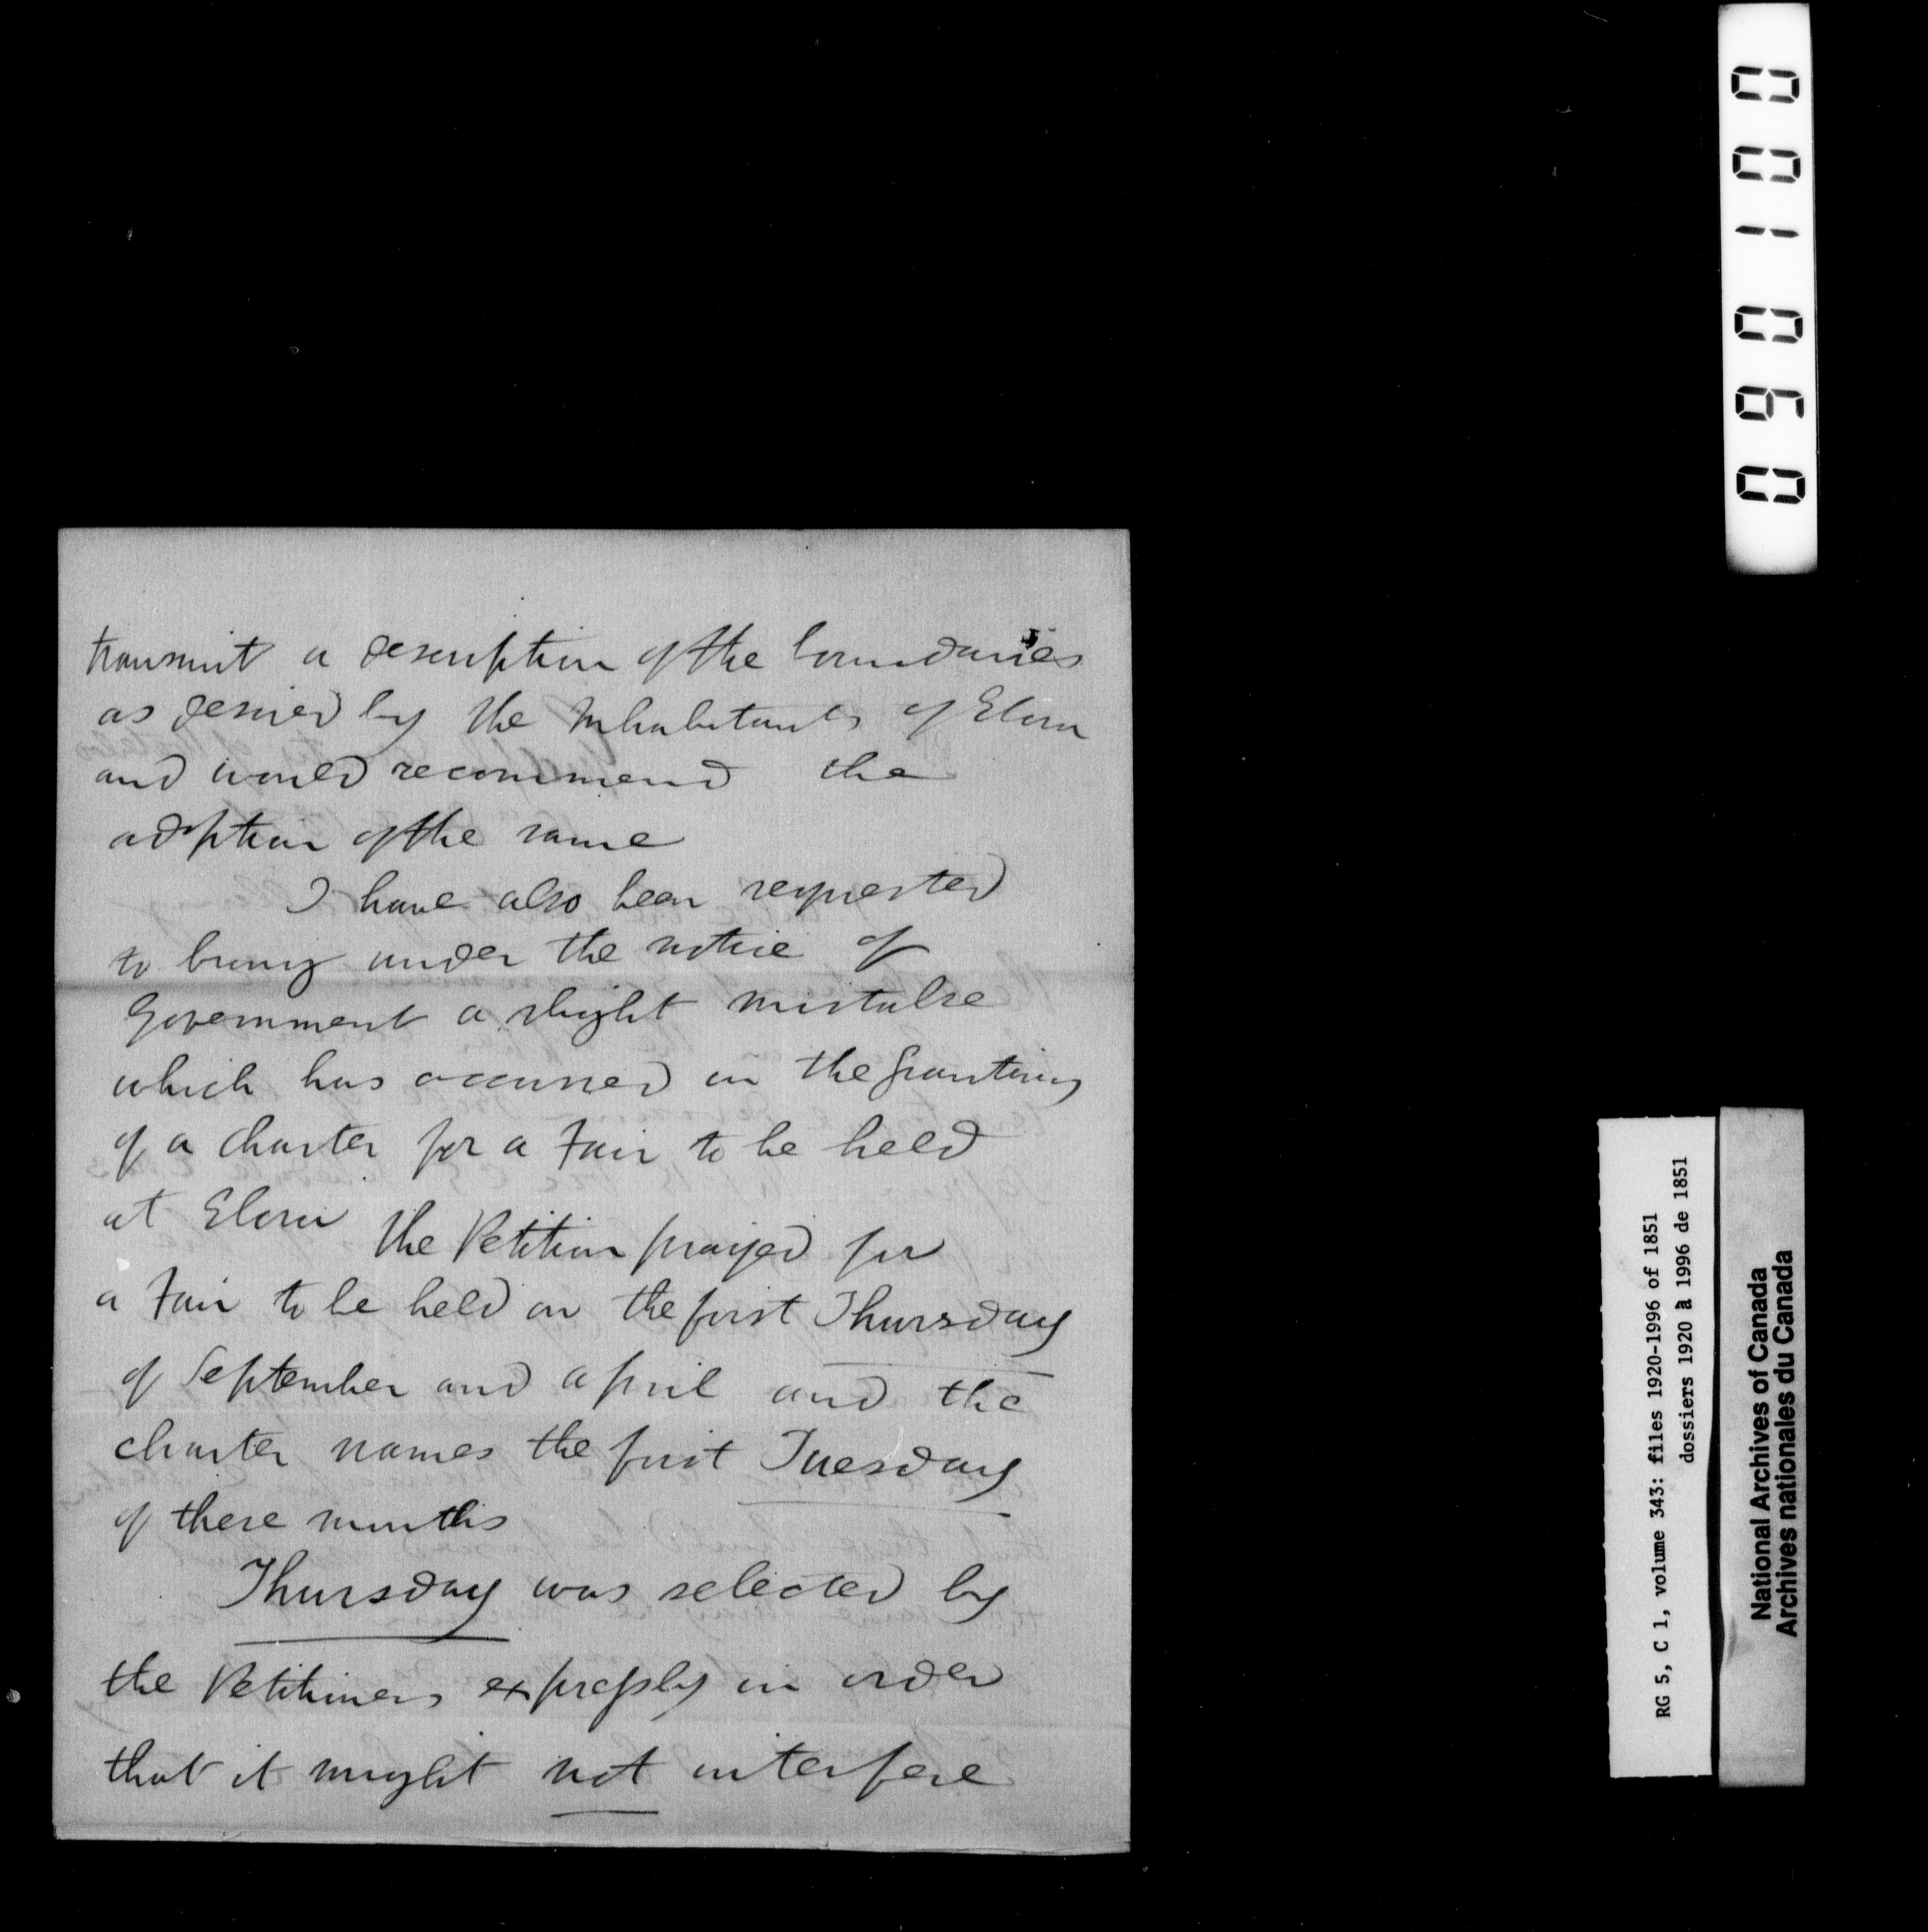 transmit a description of the boundaries
as desired by the Inhabitants of Elora
and would recommend the
adoption of the same
I have also been requested
to bring under the notice of
Government a slight mistake
which has occurred in the granting
of a charter for a Fair to be held
at Elora The Petition prayed for
a Fair to be held on the first Thursday
of September and April and the
charter names the first Tuesday
of these months
Thursday was selected by
the Petitioners expressly in order
that it might not interfere
001060
RG 5, C 1, volume 343: files 1920-1996 of 1851
dossiers 1920 à 1996 de 1851
National Archives of Canada
Archives nationales du Canada